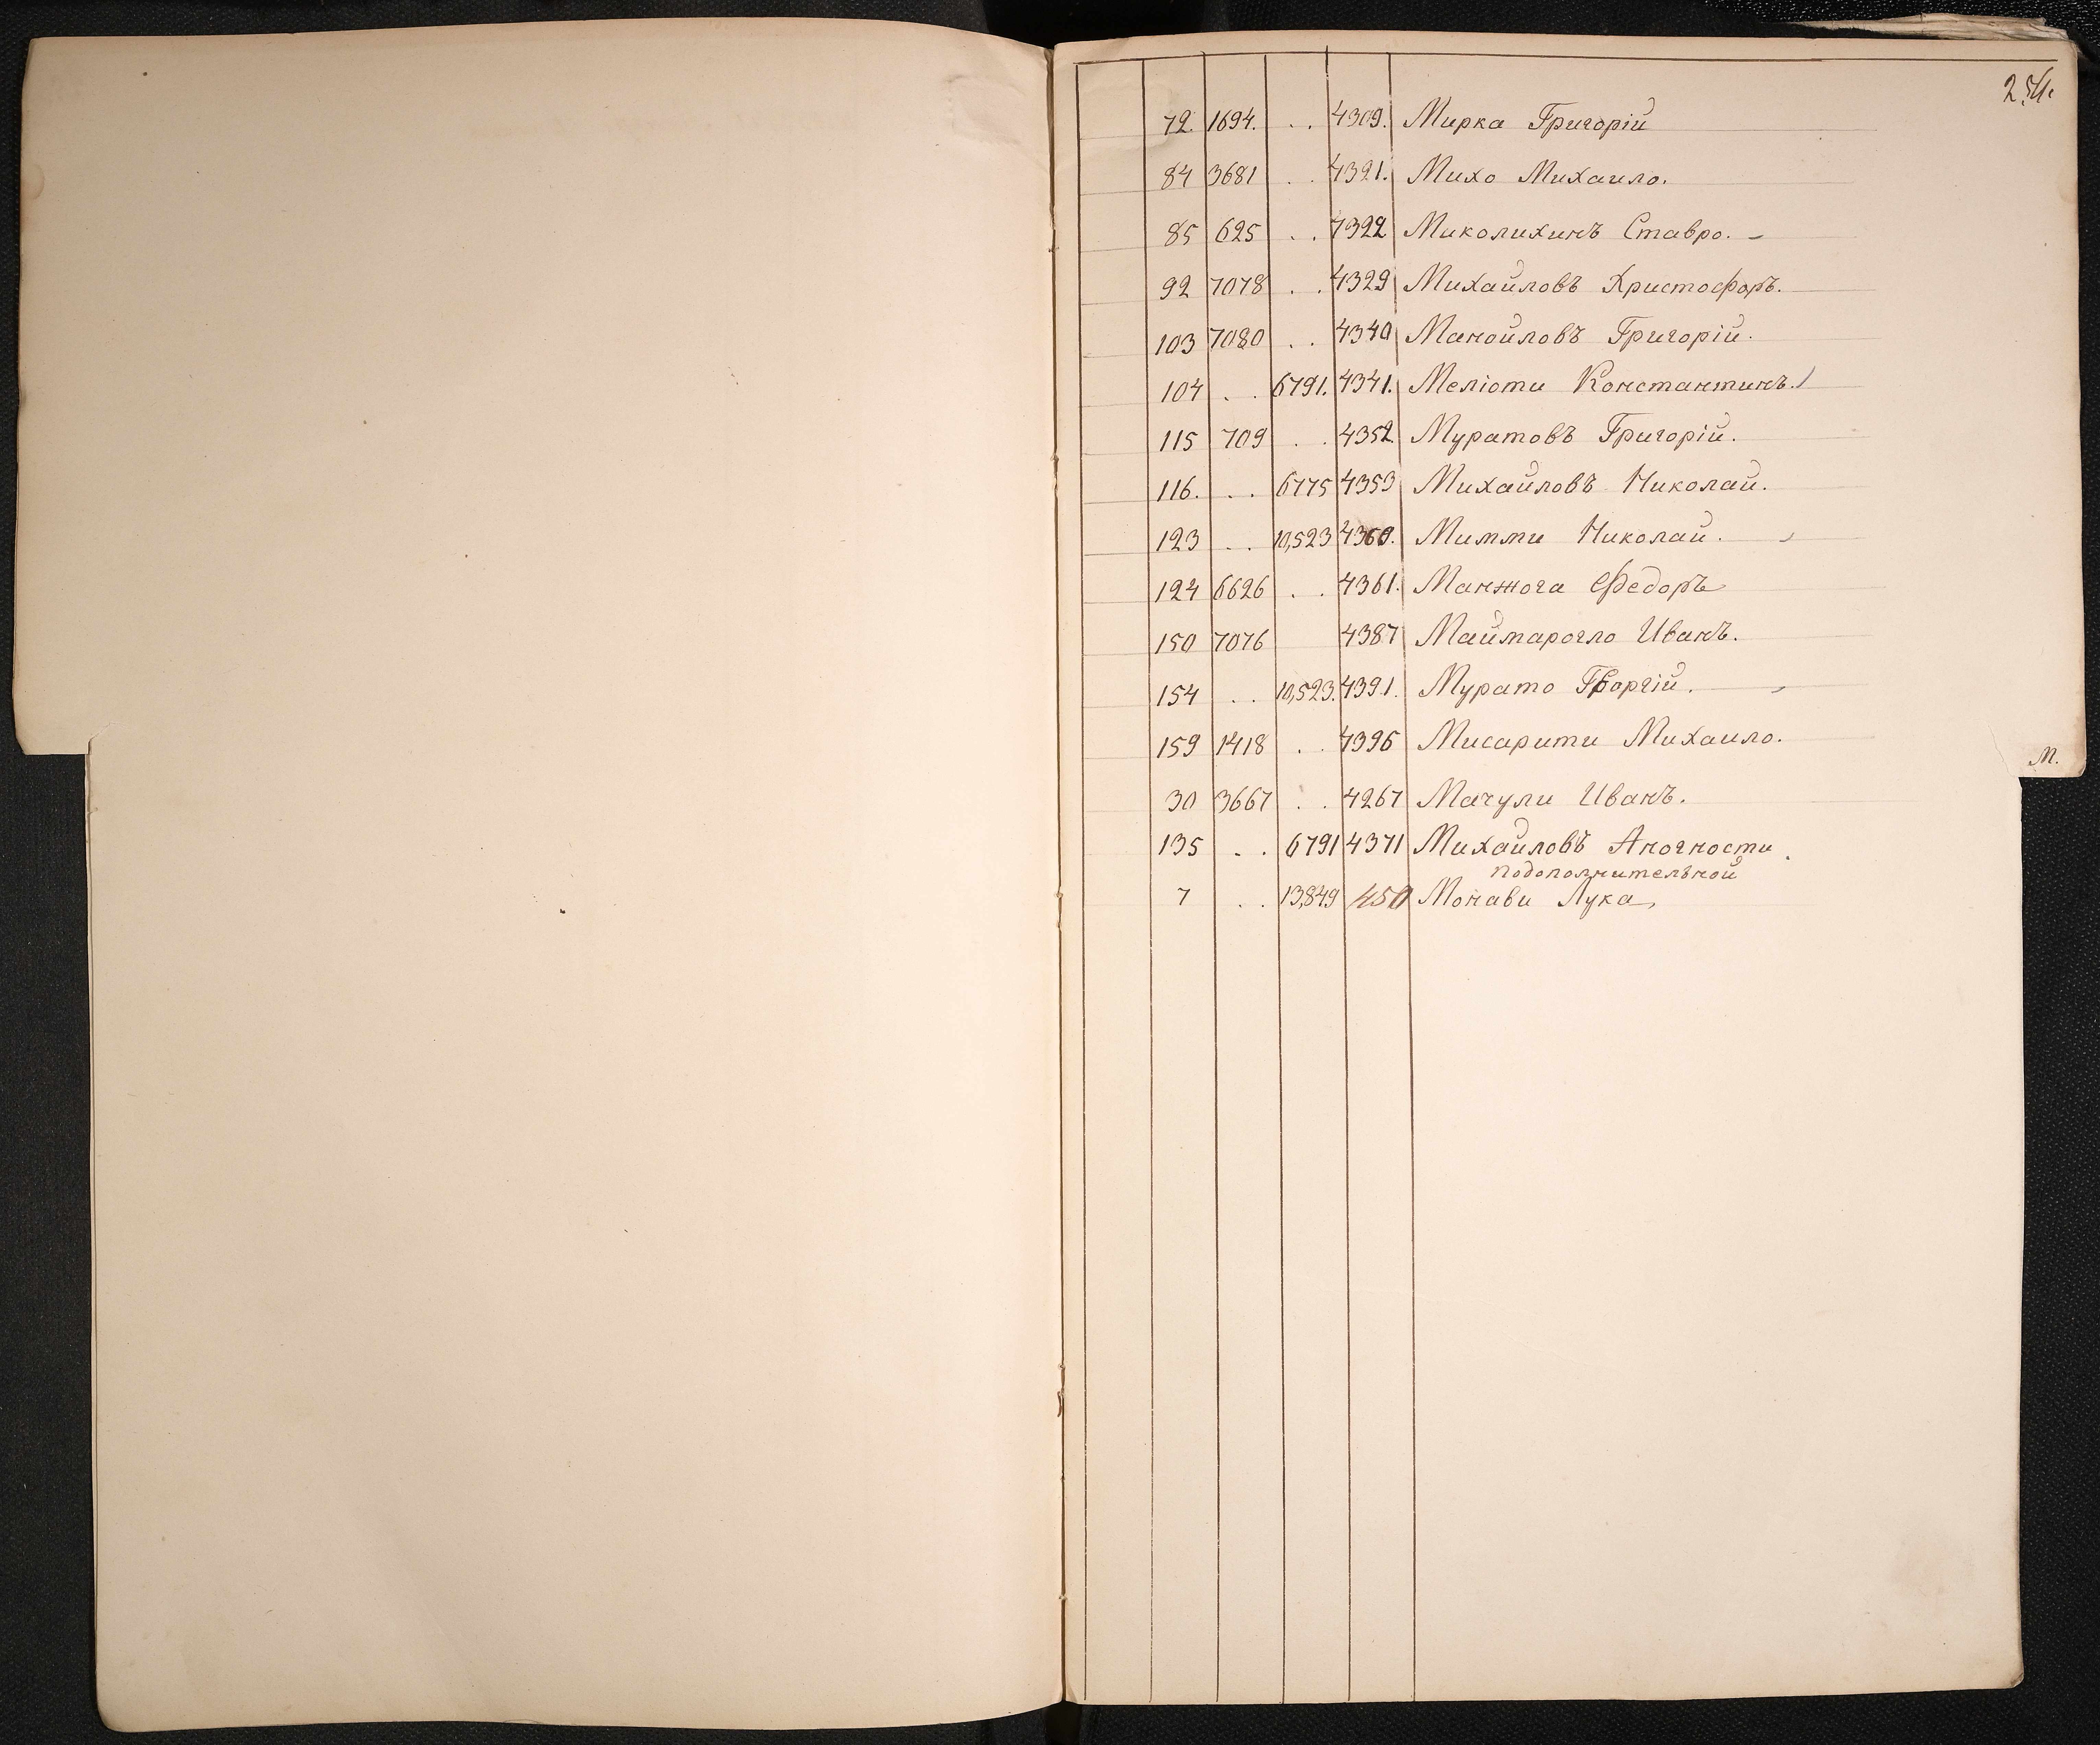 72. 1694. . . 4309. Мирка Григорій
84 3681 . . 4321. Михо Михаило.
85 625 . . 4322 Миколихинъ Ставро.
92 7078 . . 4329 Михайловъ Христофоръ.
103 7080 . . 4340 Манойловъ Григорій.
104 . . 6791. 4341. Меліоти Константинъ.
115 709 . . 4352. Муратовъ Григорій.
116. . . 6775 4353 Михайловъ Николай.
123 . . 10,523 4360. Мимми Николай.
124 6626 . . 4361. Манжога Федоръ
150 7076 4387 Маймарогло Иванъ.
154 . . 10,523. 4391. Мурато Георгій.
159 1418 . . 4396 Мисарити Михаило.
М.
30 3667 . . 4267 Мачули Иванъ.
135 . . 6791 4371 Михайловъ Аногности
подополнительной
7 . . 13,849 450 Монави Лука,